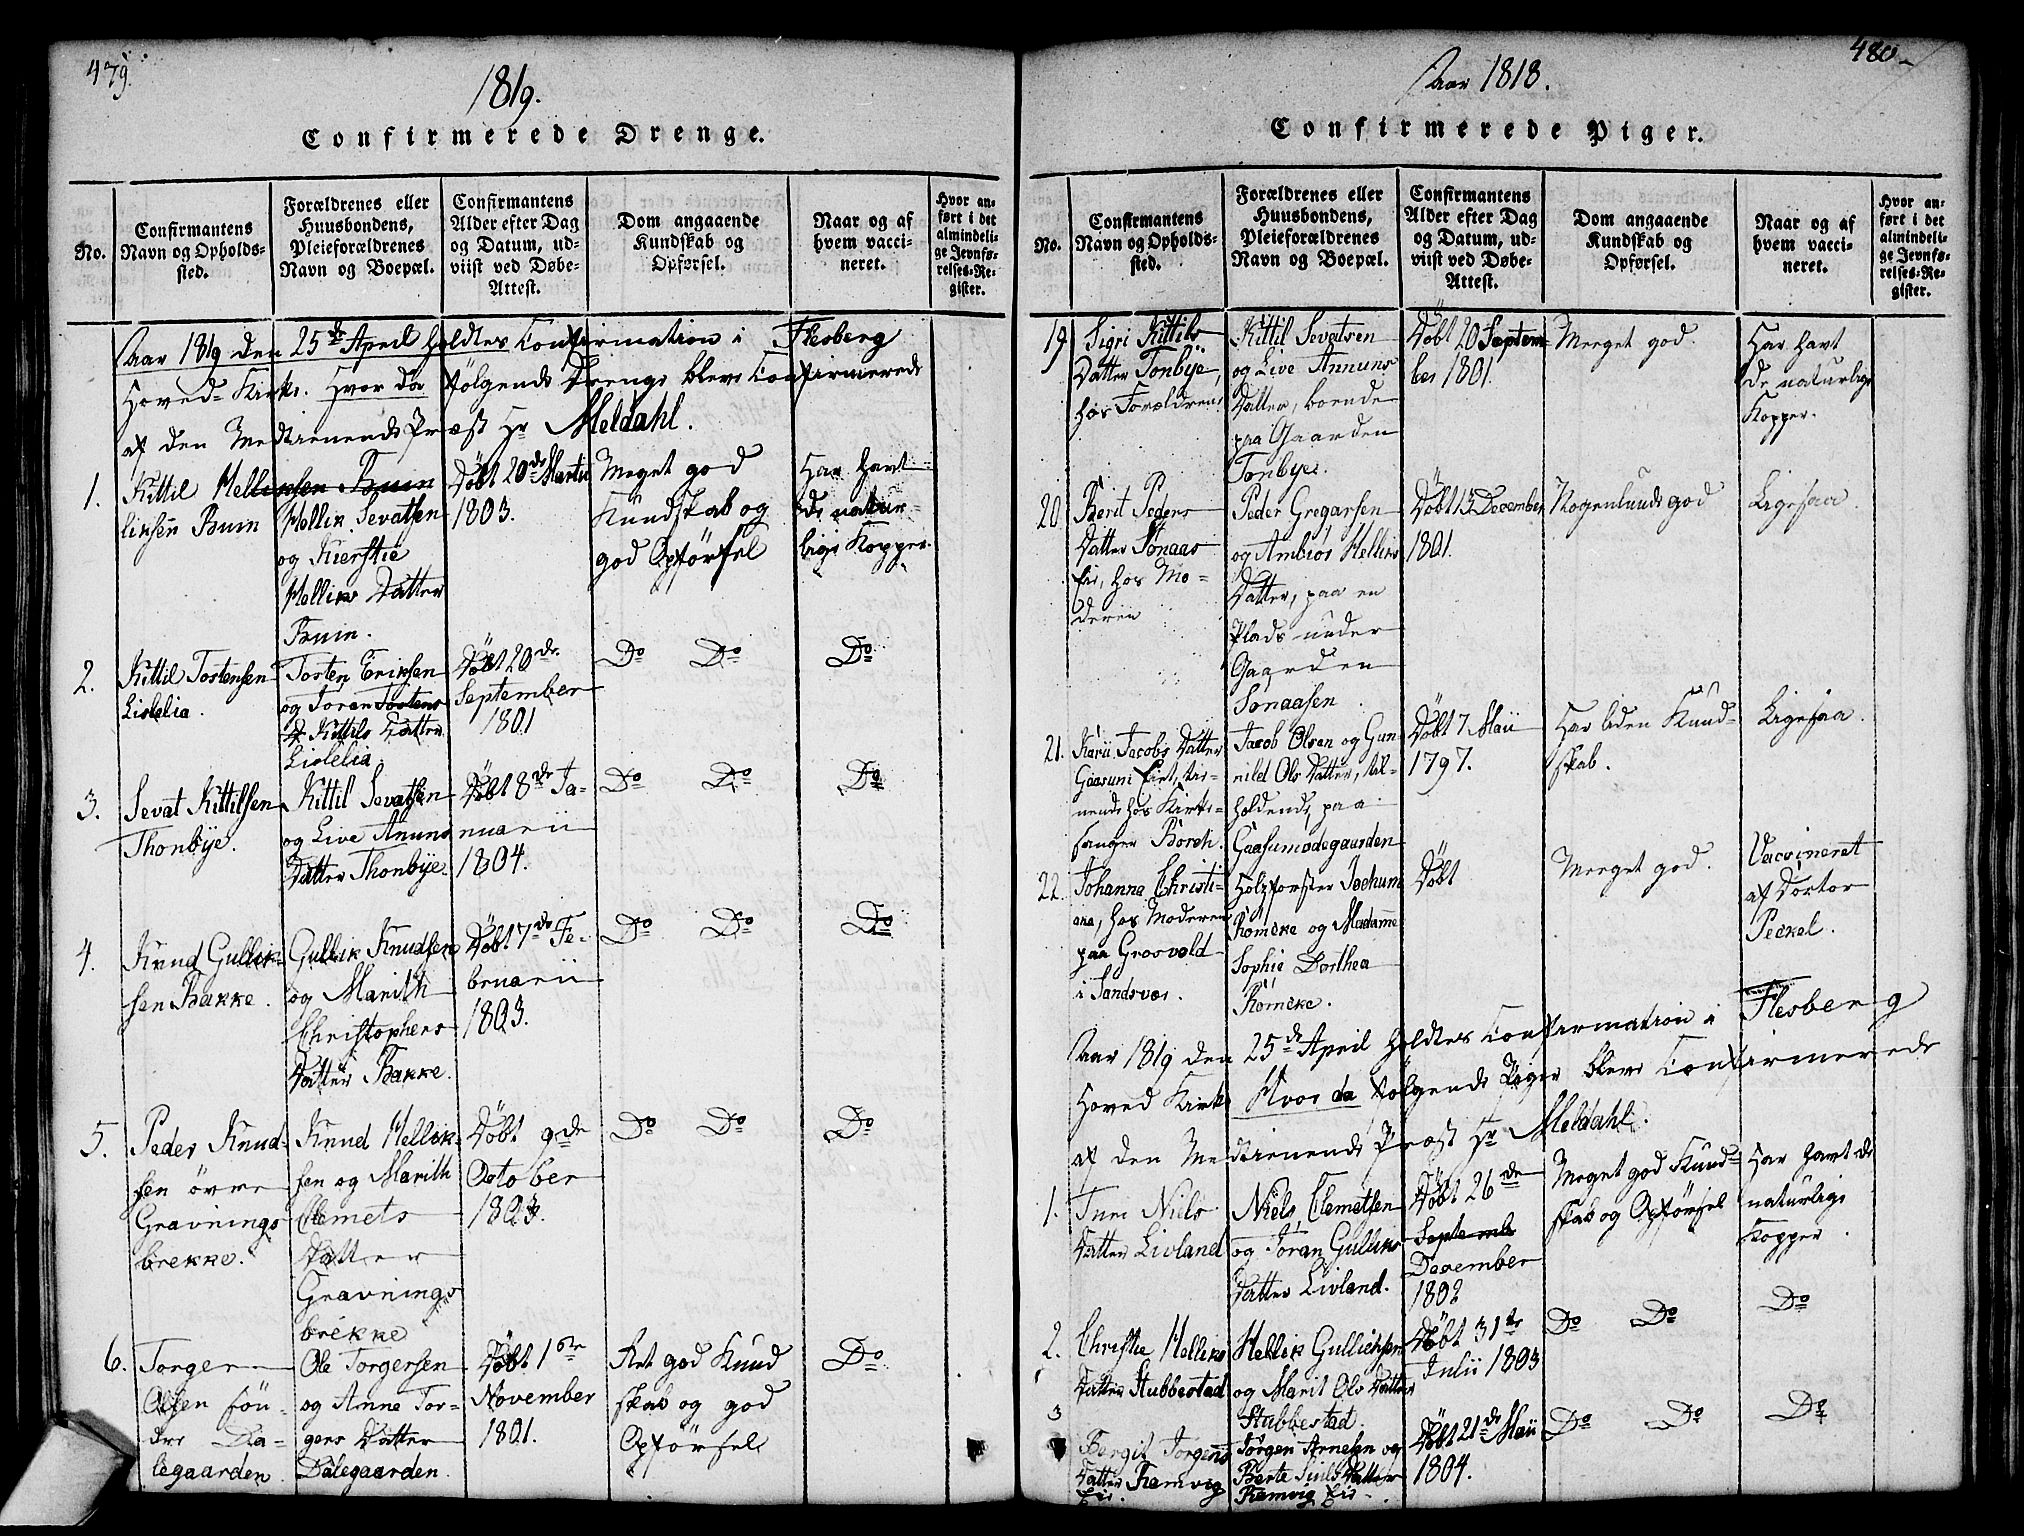 479.
1819.
Confirmerede Drenge.
No.
Confirmantens
Navn og Opholds-
sted.
Forældrenes eller
Huusbondens,
Pleieforældrenes
Navn og Boepæl.
Confirmantens
Alder efter Dag
og Datum, ud-
viist ved Døbe-
Attest.
Dom angaaende
Kundskab og
Opførsel.
Naar og af
hvem vacci-
neret.
Hvor an-
ført i det
almindeli-
ge Jevnfø-
relses-Re-
gister.
Aar 1819 den 25de April holdtes Confirmation i Flesberg
Hoved-Kirke. Hvor da følgende Drenge bleve Confirmerede
af den Medtienende Præst Hr Meldahl.
1.
Kittil Helliksen Bruin
liksen Bruin
Hellik Sevatsen
og Kierstie
Helliks Datter
Bruin.
Døbt 20de Martii
1803.
Meget god
Kundskab og
god Opførsel
Har havt
de natur-
lige Kopper.
2.
Kittil Tostensen
Lislelia.
Torsten Eriksen
og Joran Tostens
D Kittils Datter
Lislelia.
Døbt 20de
September
1801
Do Do
Do
3.
Sevat Kittilsen
Thonbye.
Kittil Sevatsen
og Live Anuns
Datter Thonbye.
Døbt 8de Ja-
nuarii
1804.
Do Do
Do
4.
Knud Gullik-
sen Bakke.
Gullik Knudsen
og Marith
Christophers
Datter Bakke.
Døbt 7de Fe-
bruarii
1803.
Do Do
Do
5.
Peder Knud-
sen övre
Gravnings
brekke.
Knud Hellik-
sen og Marith
Clemets
Datter
Gravnings
brekke
Døbt 9de
October
1803.
Do Do
Do
6.
Torger
Olsen
Da-
legaarden.
Ole Torgersen
og Anne Tor-
gers Datter
Dalegaarden.
Døbt 1ste
November
1801.
Ret god Kund
skab og god
Opførsel
Do
480
Aar 1818.
Confirmerede Piger.
No.
Confirmantens
Navn og Opholds-
sted.
Forældrenes eller
Huusbondens,
Pleieforældrenes
Navn og Boepæl.
Confirmantens
Alder efter Dag
og Datum, ud-
viist ved Døbe-
Attest.
Dom angaaende
Kundskab og
Opførsel.
Naar og af
hvem vacci-
neret.
Hvor an-
ført i det
almindeli-
ge Jevnfø-
relses-Re-
gister.
19.
Sigri Kittils
Datter Tonbye,
hos Forældrene
Kittil Sevatsen
og Live Annuns
Datter, boende
paa Gaarden
Tonbye.
Døbt 20 Septem-
ber 1801.
Meeget god.
Har havt
de naturlige
Kopper.
20.
Berit Peders
Datter Sonaas
Eie, hos Mo-
deren
Peder Gregarsen
og Ambiør Helliks
Datter, paa en
Plads under
Gaarden
Sonaasen.
Døbt 13 December
1801.
Nogenlunde god
Ligesaa.
21.
Karii Jacobs Datter
Gaasuni Eiet, tie-
nende hos Kirke-
sanger Borch.
Jacob Olsen og Gun-
nild Ols Datter, til-
holdende paa
Gaasumødegaarden
Døbt 7 Maii
1797.
Har liden Kund-
skab.
Ligesaa.
22.
Johanna Christi-
ana, hos Moderen
paa Grosvold
i Sandsver.
Holzforster Jochum
Römcke og Madamme
Sophie Dorthea
Römcke.
Døbt
Meeget god.
Vaccineret
af Doctor
Peckel.
Aar 1819 den 25de April holdtes Confirmation i Flesberg
Hoved Kirke Hvor da følgende Piger bleve Confirmerede
af den Medtienende Præst Hr Meldahl.
1.
Turi Niels
Datter Livland
Niels Clemetsen
og Joran Gulliks
Datter Livland.
Døbt 26de
Septemb
December
1802
Meget god Kund-
skab og Opførsel
Har havt de
naturlige
Kopper.
2.
Christie Helliks
Datter Stubbestad
Hellik Gulliksen
og Marit Ols Datter
Stubbestad.
Døbt 31te
Julii 1803
Do Do
Do
3
Bergit Jorgens
Datter Ramvig
Eie.
Jørgen Arnesen og
Berte Datter
Ramvig Eie.
Døbt 21de Maii
1804.
Do Do
Do